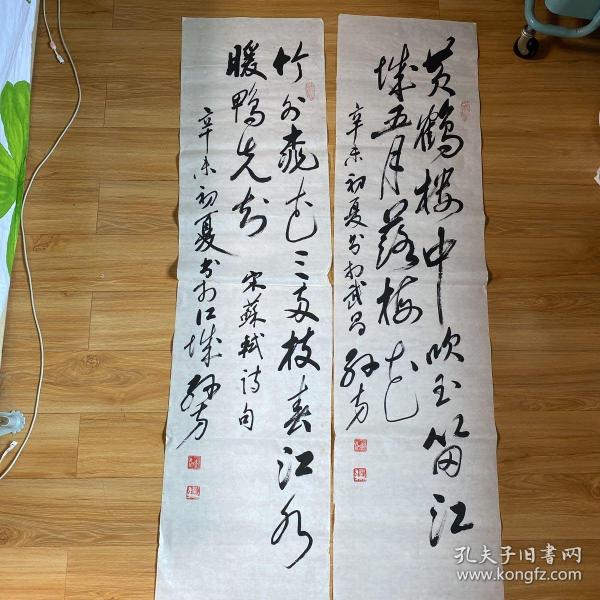 黄鹤楼中吹玉笛江
城五月落梅花
辛未初夏书于武昌
竹外桃花三两枝春江水
暖鸭先知
宋蘇軾诗句
辛未初夏书于江城
孔夫子旧书网
www.kongfz.com